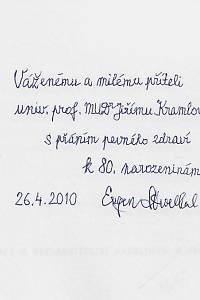 Váženému a milému příteli
univ. prof. MUDr Jiřímu Kramlov
s přáním pevného zdraví
k 80. narozeninám
26.4.2010 Evgen